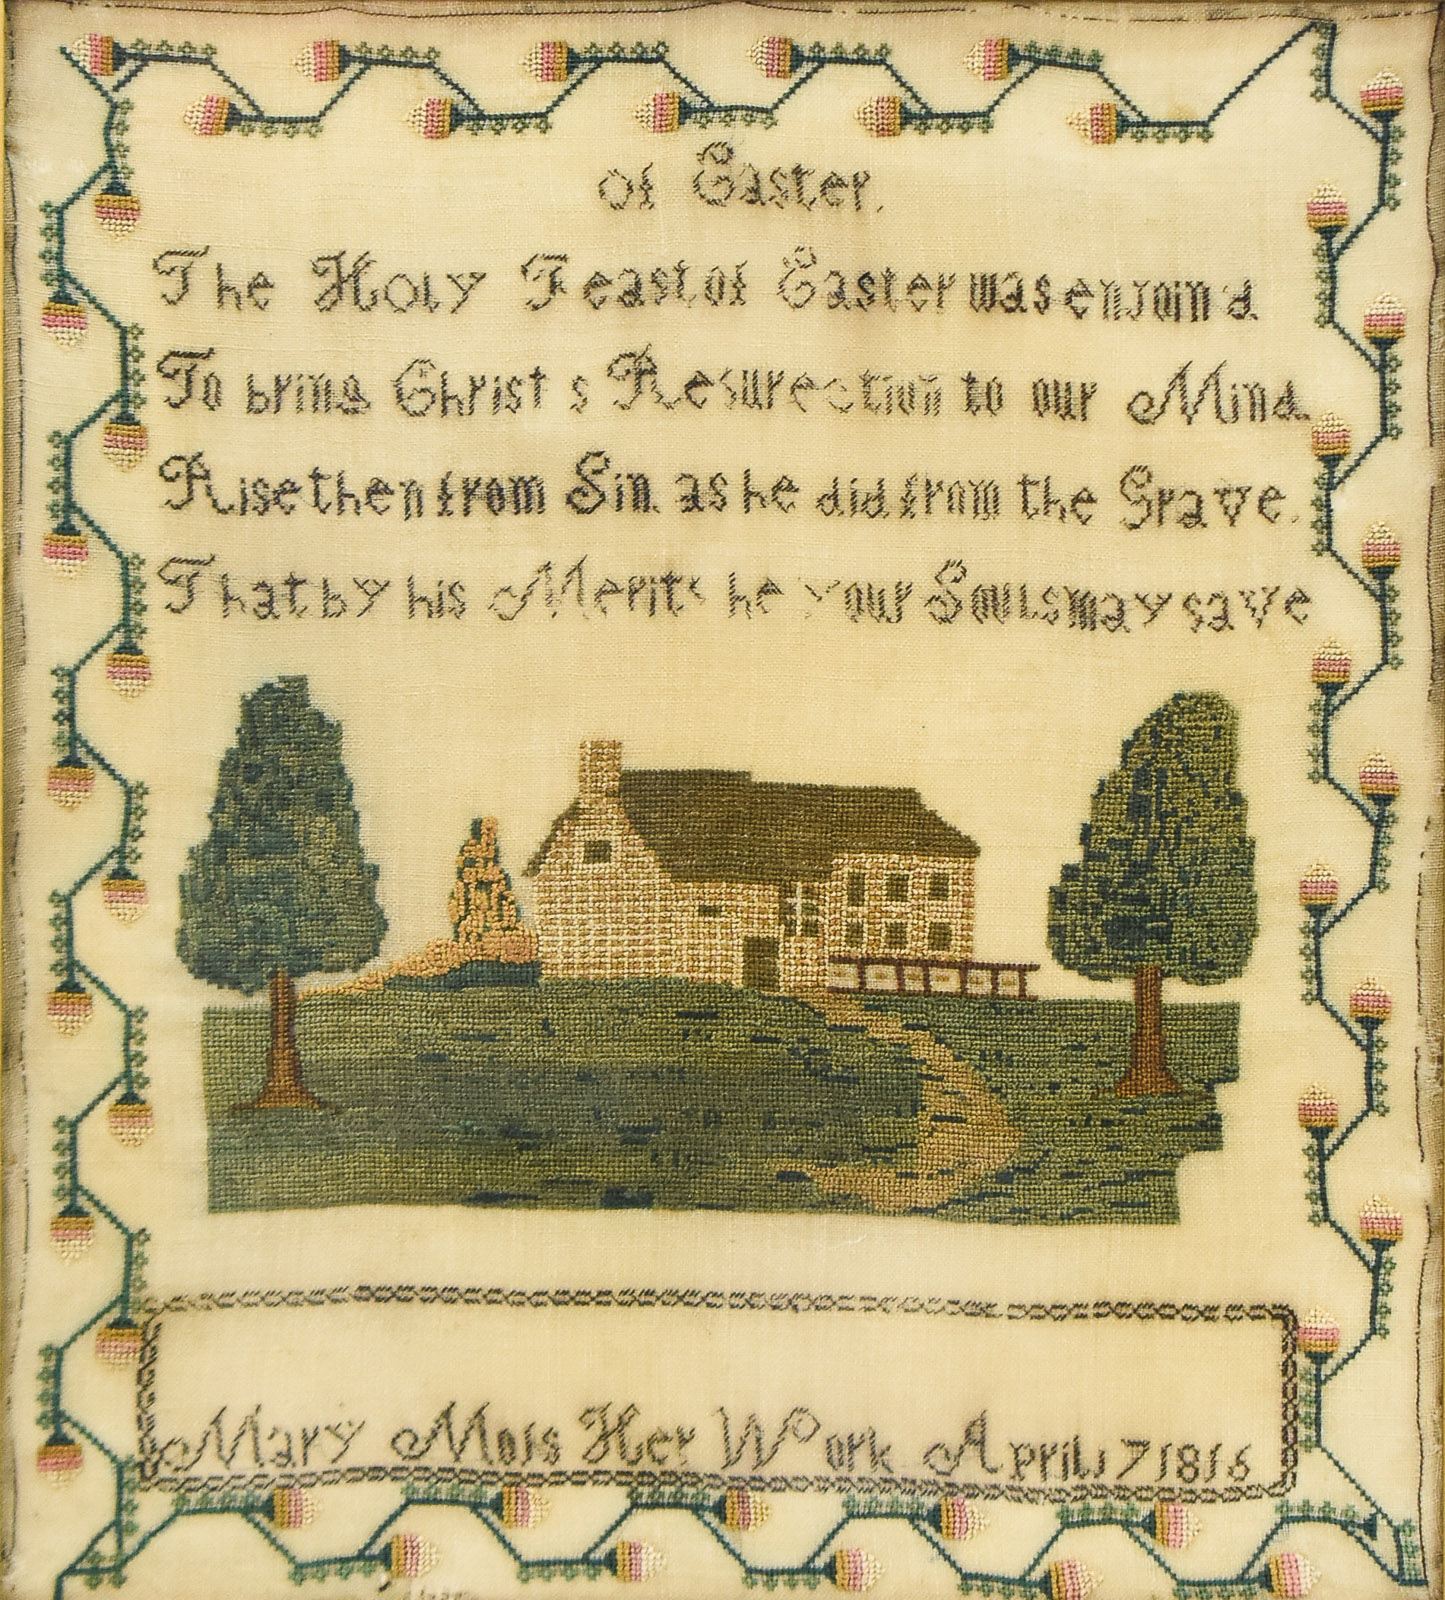 of Easter.
The Holy Feast of Easter was enjoin'd
To bring Christ s Resurection to our Mind
Rise then from Sin as he did from the Grave.
That by his Merits he your Souls may save
Mary Mois Her Work April 17 1816